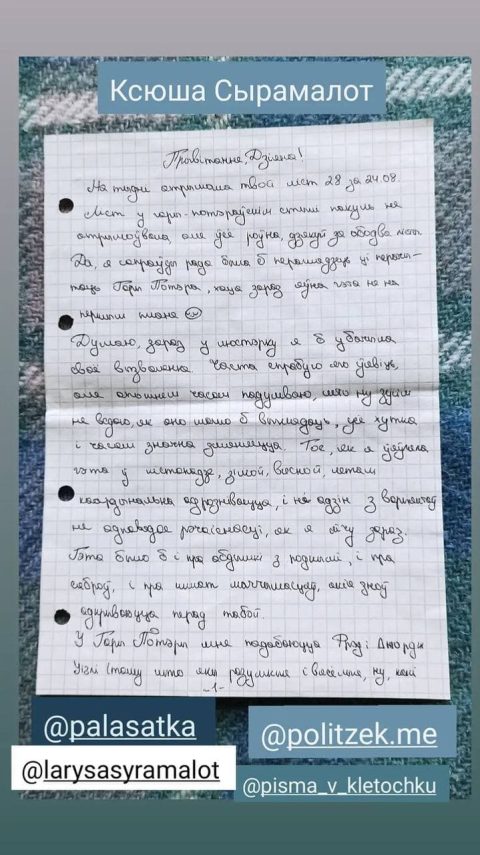 Ксюша Сырамалот
Прывітанне, Дзіяна!
На тыдні атрымала твой ліст 28 за 24.08.
Ліст у гары-потэраўскім стылі пакуль не
атрымоўвала, але ўсё роўна, дзякуй за абодва лісты.
Да, я сапраўды рада была б перагледзець ці перачы-
таць Гары Потэра, хаця зараз яўна гэта не на
першым плане
Думаю, зараз у люстэрку я б убачыла
сваё вызваленне. Часта спрабую яго ўявіць,
але апошнім часам падумваю, што ну зусім
не ведаю, як яно магло б выглядаць, усё хутка
і часам значна змяняецца. Тое, як я ўяўляла
гэта ў лістападзе, зімой, вясной, летам
каардынальна адрозніваецца, і не адзін з варыянтаў
не адпавядае рэчаіснасці, як я лічу зараз.
Гэта было б і пра абдымкі з роднымі, і пра
сяброў, і пра шмат магчымасцяў, якія зноў
адкрываюцца перад табой.
У Гары Потэры мне падабаюцца Фрэд і Джордж
Уізлі (таму што яны разумныя і вясёлыя, ну, калі
-1-
@palasatka
@politzek.me
@larysasyramalot
@pisma_v_kletochku